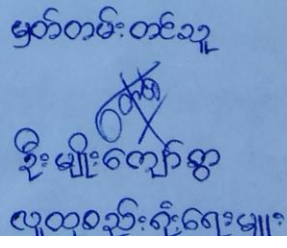 မှတ်တမ်းတင်သူ
ဦးမျိုးကျော်စွာ
လူထုစည်းရုံးရေးမှူး